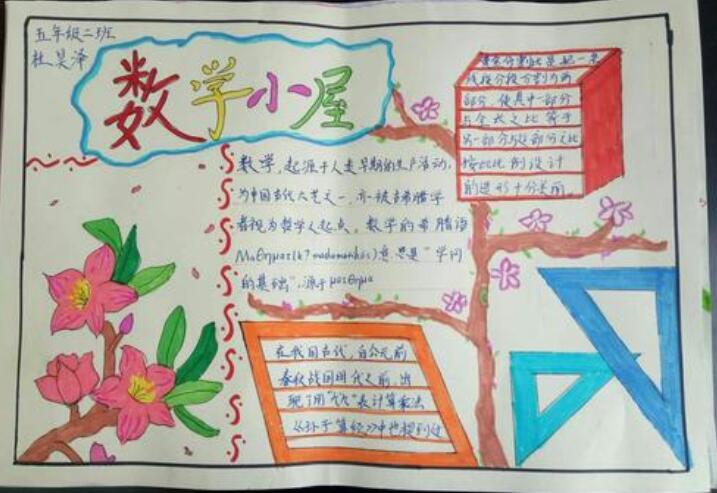 五年级二班
杜昊泽
数学小屋
黄金分割比是把一条
线段分段分割为两
部分，使其中一部分
与全长之比等于
另一部分与这部分之比
按此比例设计
的造形十分美丽。
数学，起源于人类早期的生产活动，
为中国古代六艺之一，亦被古希腊学
者视为哲学之起点，数学的希腊语
意思是“学问
的基础”，源于μαθημα
在我国古代，自公元前
春秋战国时代之前，出
现了用“九九”表计算乘法
《孙子算经》中也提到过